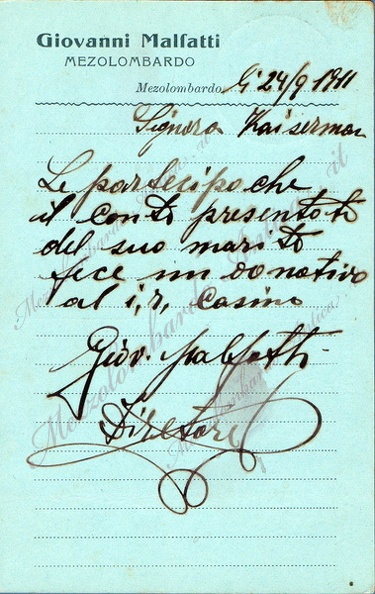 Giovanni Malfatti
MEZOLOMBARDO
Mezolombardo, li 24/9 1911
Signora Kaiserman
Le partecipo che
il conto presentati
del suo marito
fece un donativo
al i, r, casino
Giov. Malfatti
Diretore